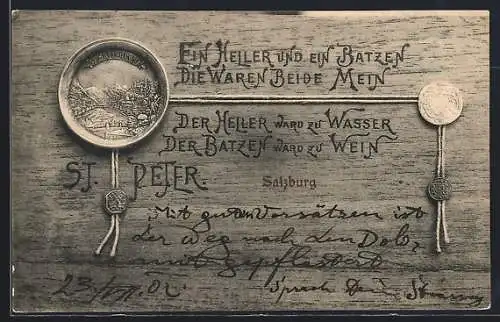 EIN HELLER UND EIN BATZEN
DIE WAREN BEIDE MEIN
DER HELLER WARD ZU WASSER
DER BATZEN WARD ZU WEIN
ST. PETER.
Salzburg
Mit guten Vorsätzen ist
der Weg nach dem
gepflastert
Sprach